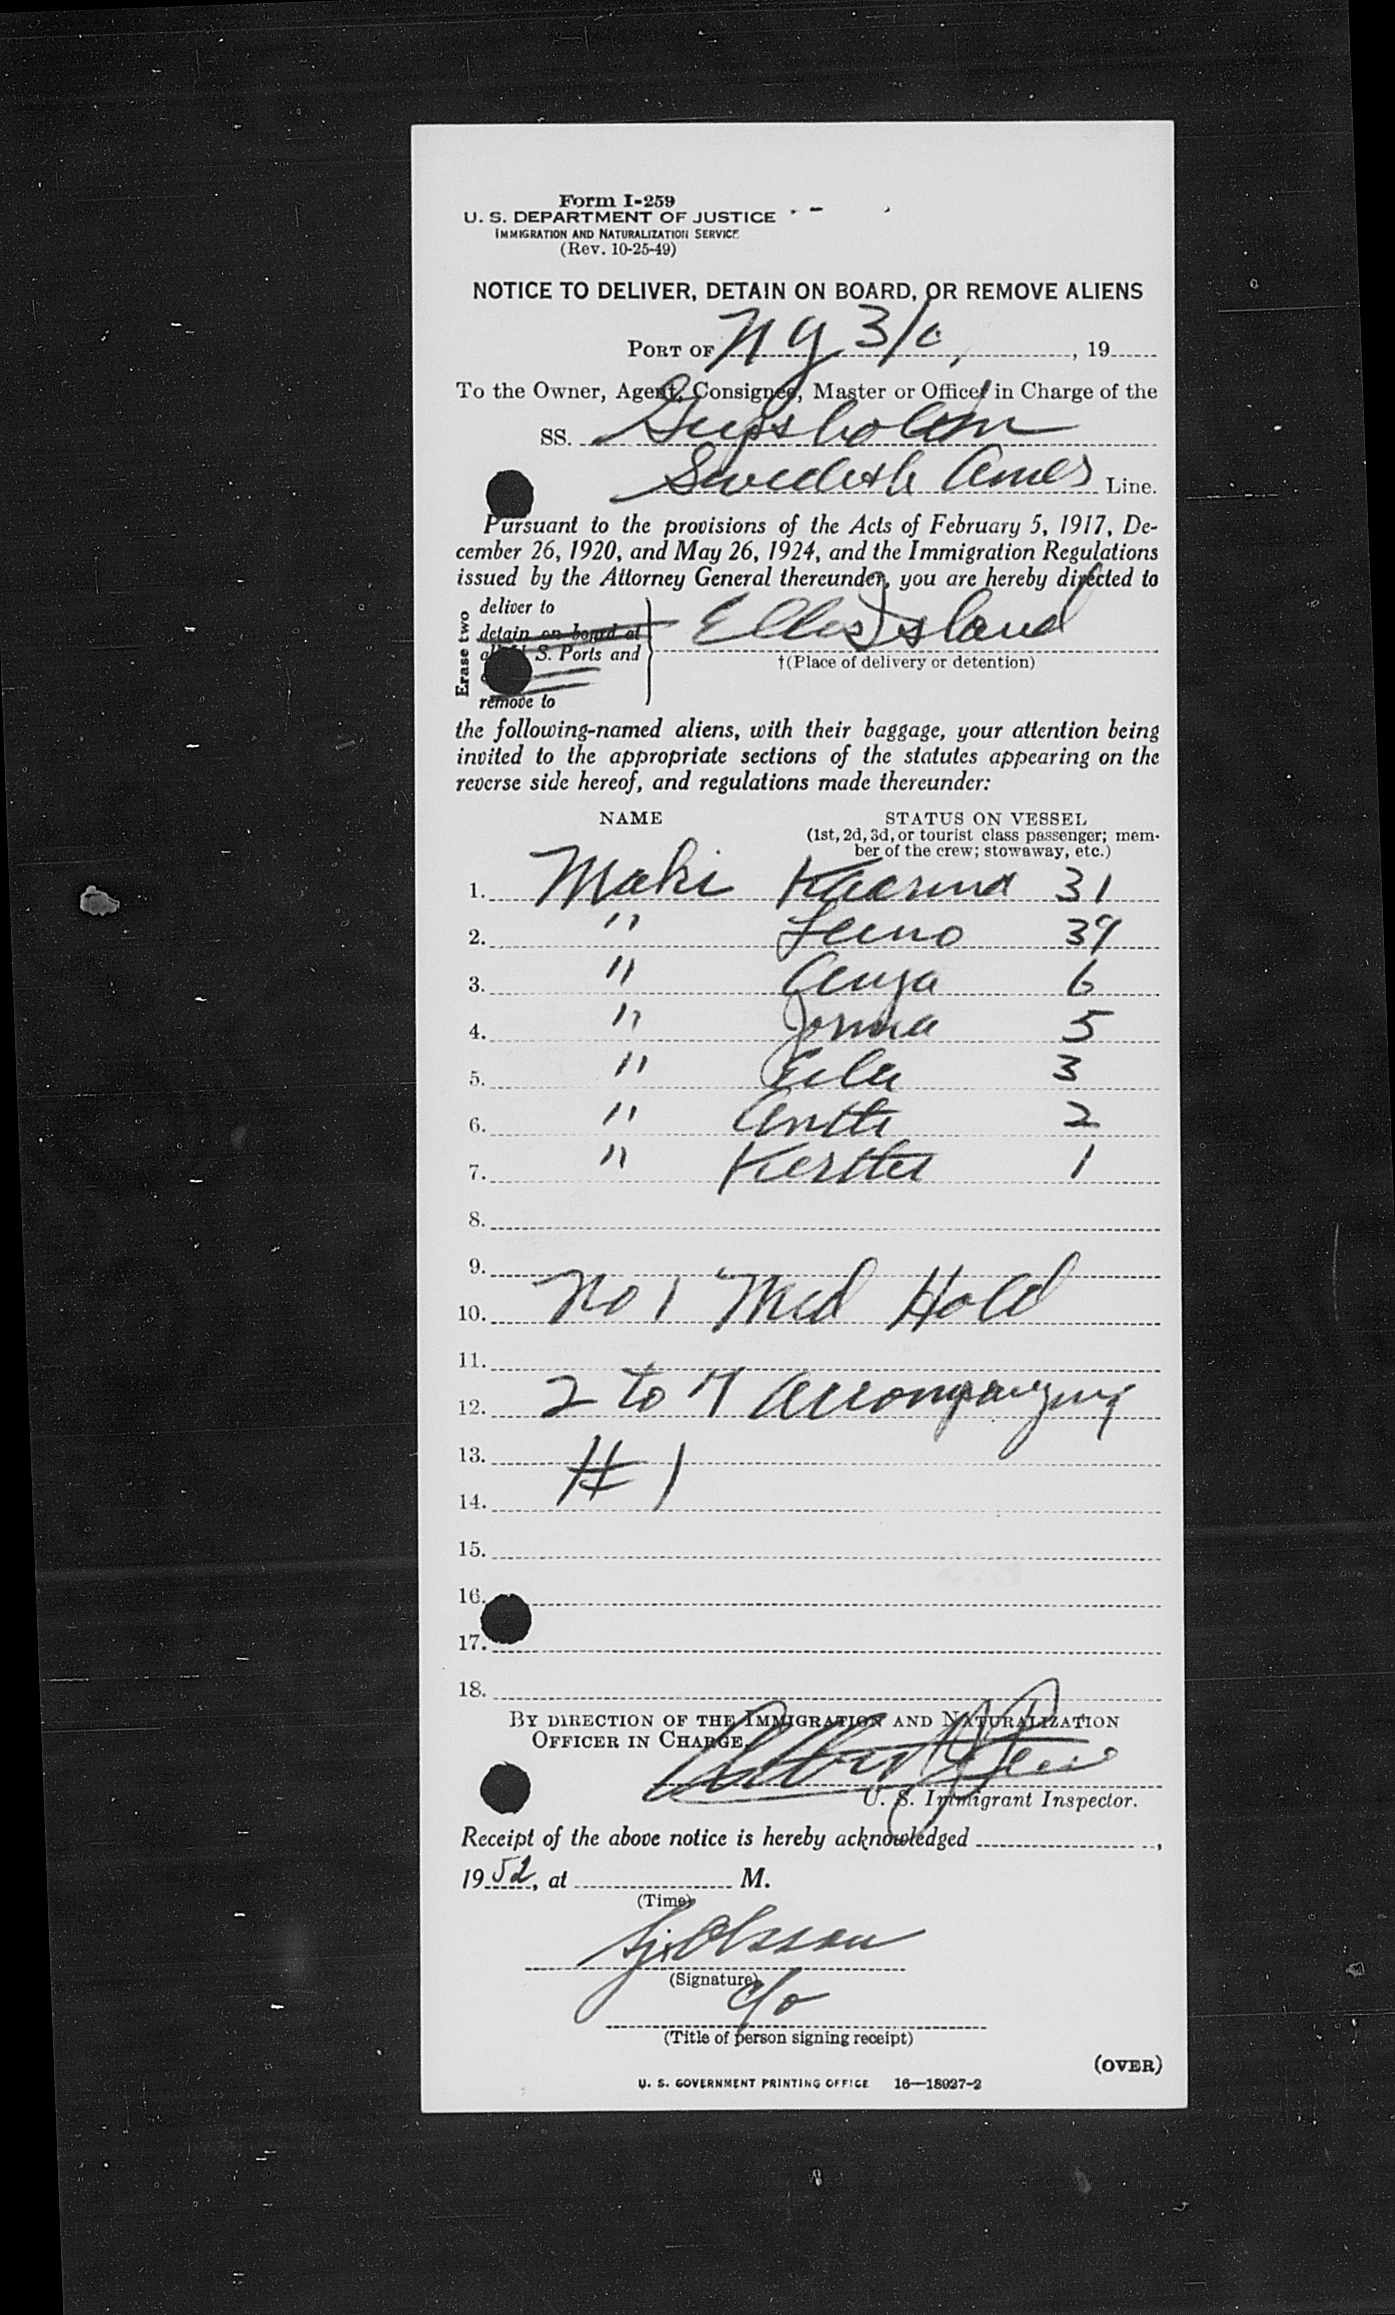 Form I-259
U. S. DEPARTMENT OF JUSTICE
IMMIGRATION AND NATURALIZATION SERVICE
(Rev. 10-25-49)
NOTICE TO DELIVER, DETAIN ON BOARD, OR REMOVE ALIENS
PORT OF N Y 3/ , 19
To the Owner, Agent, Consignee, Master or Officer in Charge of the
SS. Gripsholm
Swedish Amer Line.
Pursuant to the provisions of the Acts of February 5, 1917, De-
cember 26, 1920, and May 26, 1924, and the Immigration Regulations
issued by the Attorney General thereunder, you are hereby directed to
Erase two
deliver to
detain on board at
S. Ports and
remove to
Ellis Island
†(Place of delivery or detention)
the following-named aliens, with their baggage, your attention being
invited to the appropriate sections of the statutes appearing on the
reverse side hereof, and regulations made thereunder:
NAME STATUS ON VESSEL
(1st, 2d, 3d, or tourist class passenger; mem-
ber of the crew; stowaway, etc.)
1. Maki Kaarina 31
2. " Leino 39
3. " Anja 6
4. " Jorma 5
5. " 3
6. " Antti 2
7. " 1
8.
9.
10. No 1 Med Hold
11.
12. 2 to 7 accompanying
13.
# 1
14.
15.
16.
17.
18.
BY DIRECTION OF THE IMMIGRATION AND NATURALIZATION
OFFICER IN CHARGE,
U. S. Immigrant Inspector.
Receipt of the above notice is hereby acknowledged ,
1952, at M.
(Time)
Olsson
(Signature)
c/o
(Title of person signing receipt)
(OVER)
U. S. GOVERNMENT PRINTING OFFICE 16—18927-2